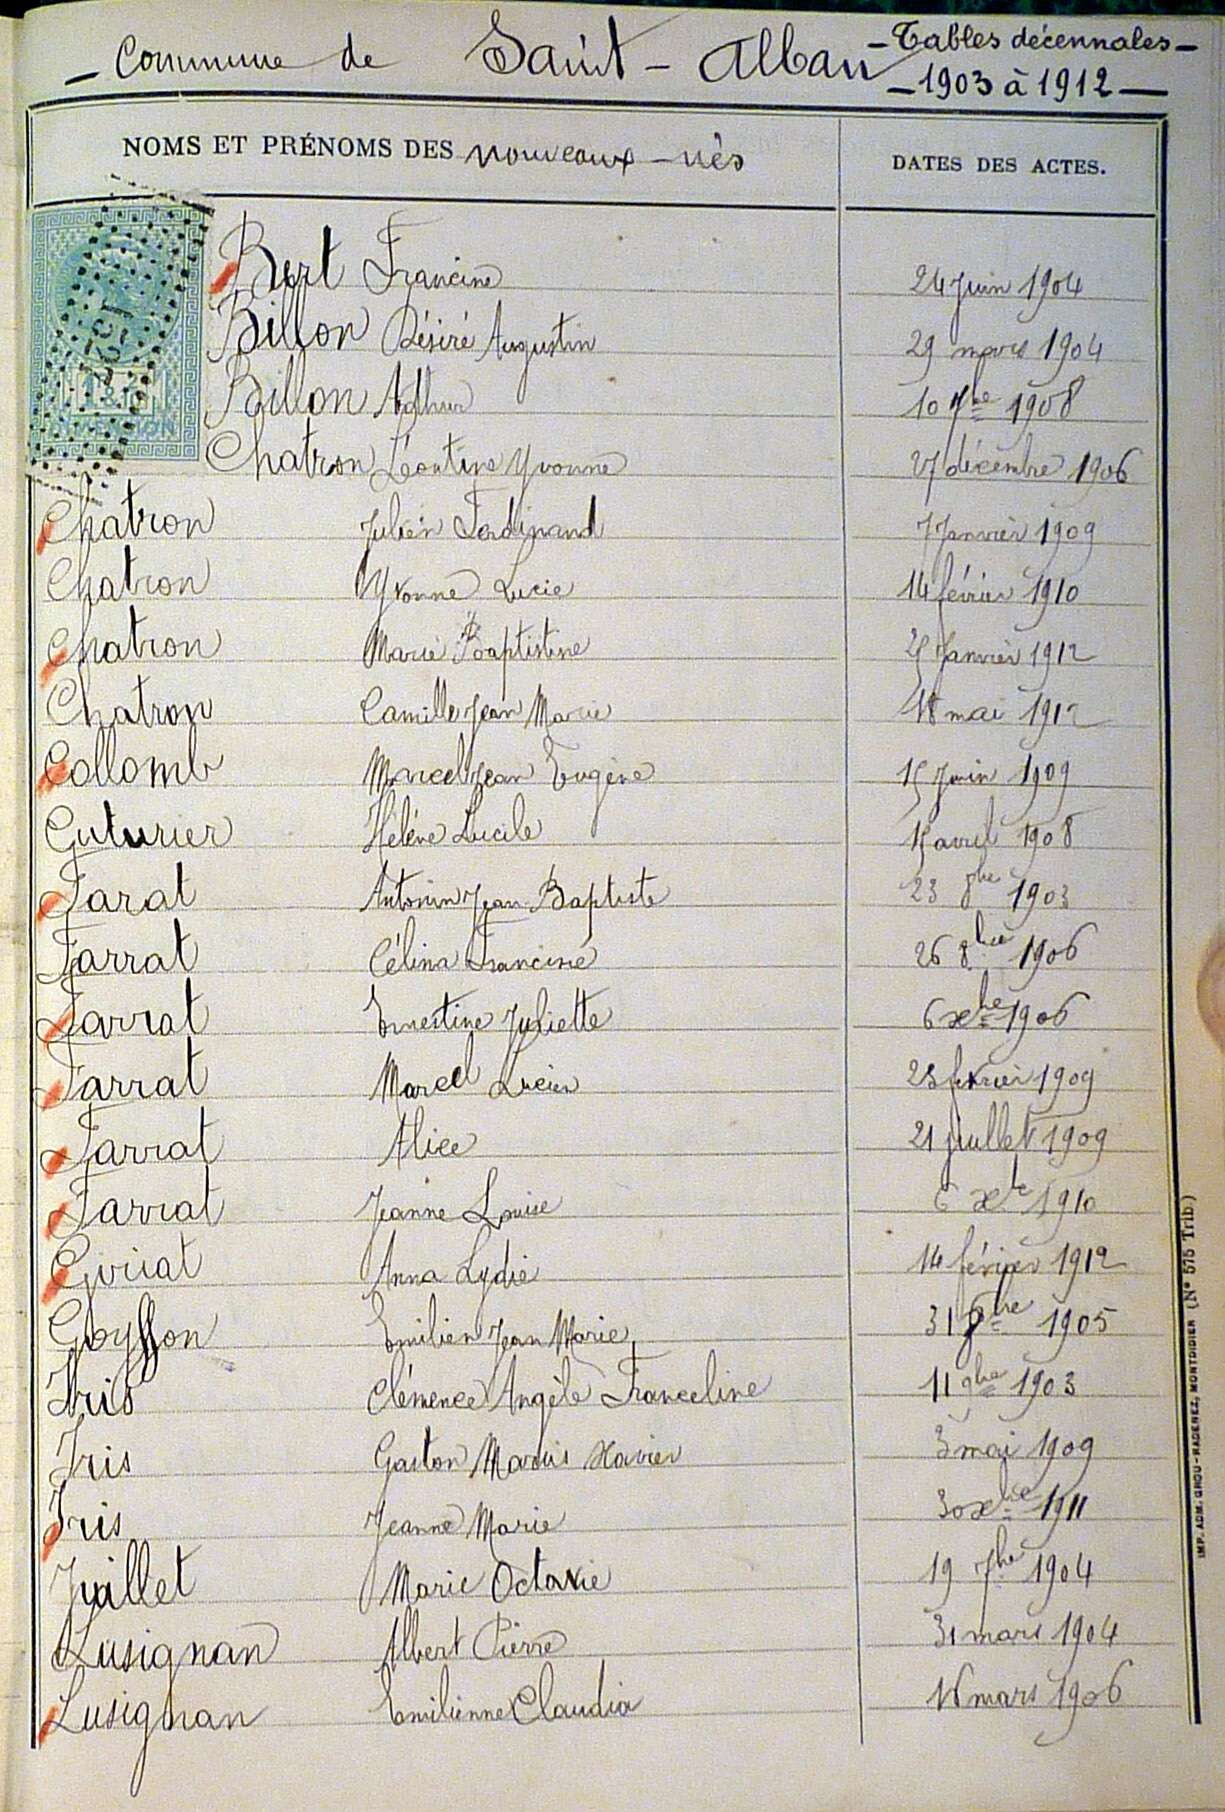 Commune de Saint-Alban
- Tables décennales -
- 1903 à 1912 -
NOMS ET PRÉNOMS DES nouveaux-nés DATES DES ACTES.
Bert Francine 24 Juin 1904
Billon Désiré Augustin 29 mars 1904
Billon Arthur 10 7bre 1908
Chatron Léontine Yvonne 27 décembre 1906
Chatron Julien Ferdinand 7 Janvier 1909
Chatron Yvonne Lucie 14 février 1910
Chatron Marie Baptistine 25 Janvier 1912
Chatron Camille Jean Marie 18 mai 1912
Collomb Marcel Jean Eugène 15 Juin 1909
Guturier Hélène Lucile 15 avril 1908
Farat Antonin Jean Baptiste 23 8bre 1903
Farrat Célina Francine 26 8bre 1906
Farrat Ernestine Juliette 6 xbre 1906
Farrat Marcel Lucien 28 fevrier 1909
Farrat Alice 21 juillet 1909
Farrat Jeanne Louise 6 xbre 1910
Goriat Anna Lydie 14 février 1912
Goysson Emilien Jean Marie 31 8bre 1905
Iris Clémence Angèle Franceline 11 9bre 1903
Iris Gaston Marius Xavier 3 mai 1909
Iris Jeanne Marie 30 xbre 1911
Juillet Marie Octavie 19 7bre 1904
Lusignan Albert Pierre 31 mars 1904
Lusignan Emilienne Claudia 16 mars 1906
IMP. ADM. GROU-RADENEZ, MONTDIDIER (N° 575 Trib.)